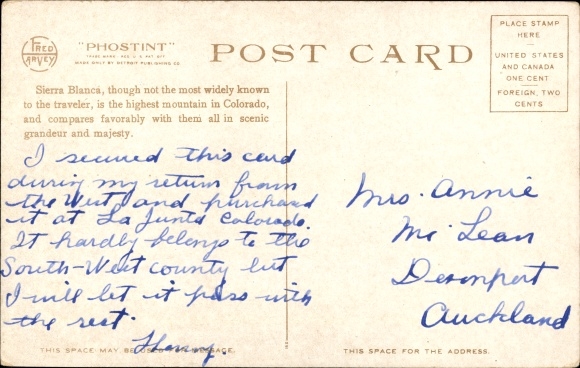 FRED HARVEY
"PHOSTINT"
TRADE MARK REG. U.S. PAT. OFF.
MADE ONLY BY DETROIT PUBLISHING CO.
POST CARD
PLACE STAMP
HERE
UNITED STATES
AND CANADA
ONE CENT
FOREIGN, TWO
CENTS
Sierra Blanca, though not the most widely known
to the traveler, is the highest mountain in Colorado,
and compares favorably with them all in scenic
grandeur and majesty.
I secured this card
during my return from
the West and purchased
it at La Junta Colorado.
It hardly belongs to the
South-West county but
I will let it pass with
the rest.
Henry.
THIS SPACE MAY BE USED FOR MESSAGE.
Mrs. Annie
Mc Lean
Devonport
Auckland
THIS SPACE FOR THE ADDRESS.